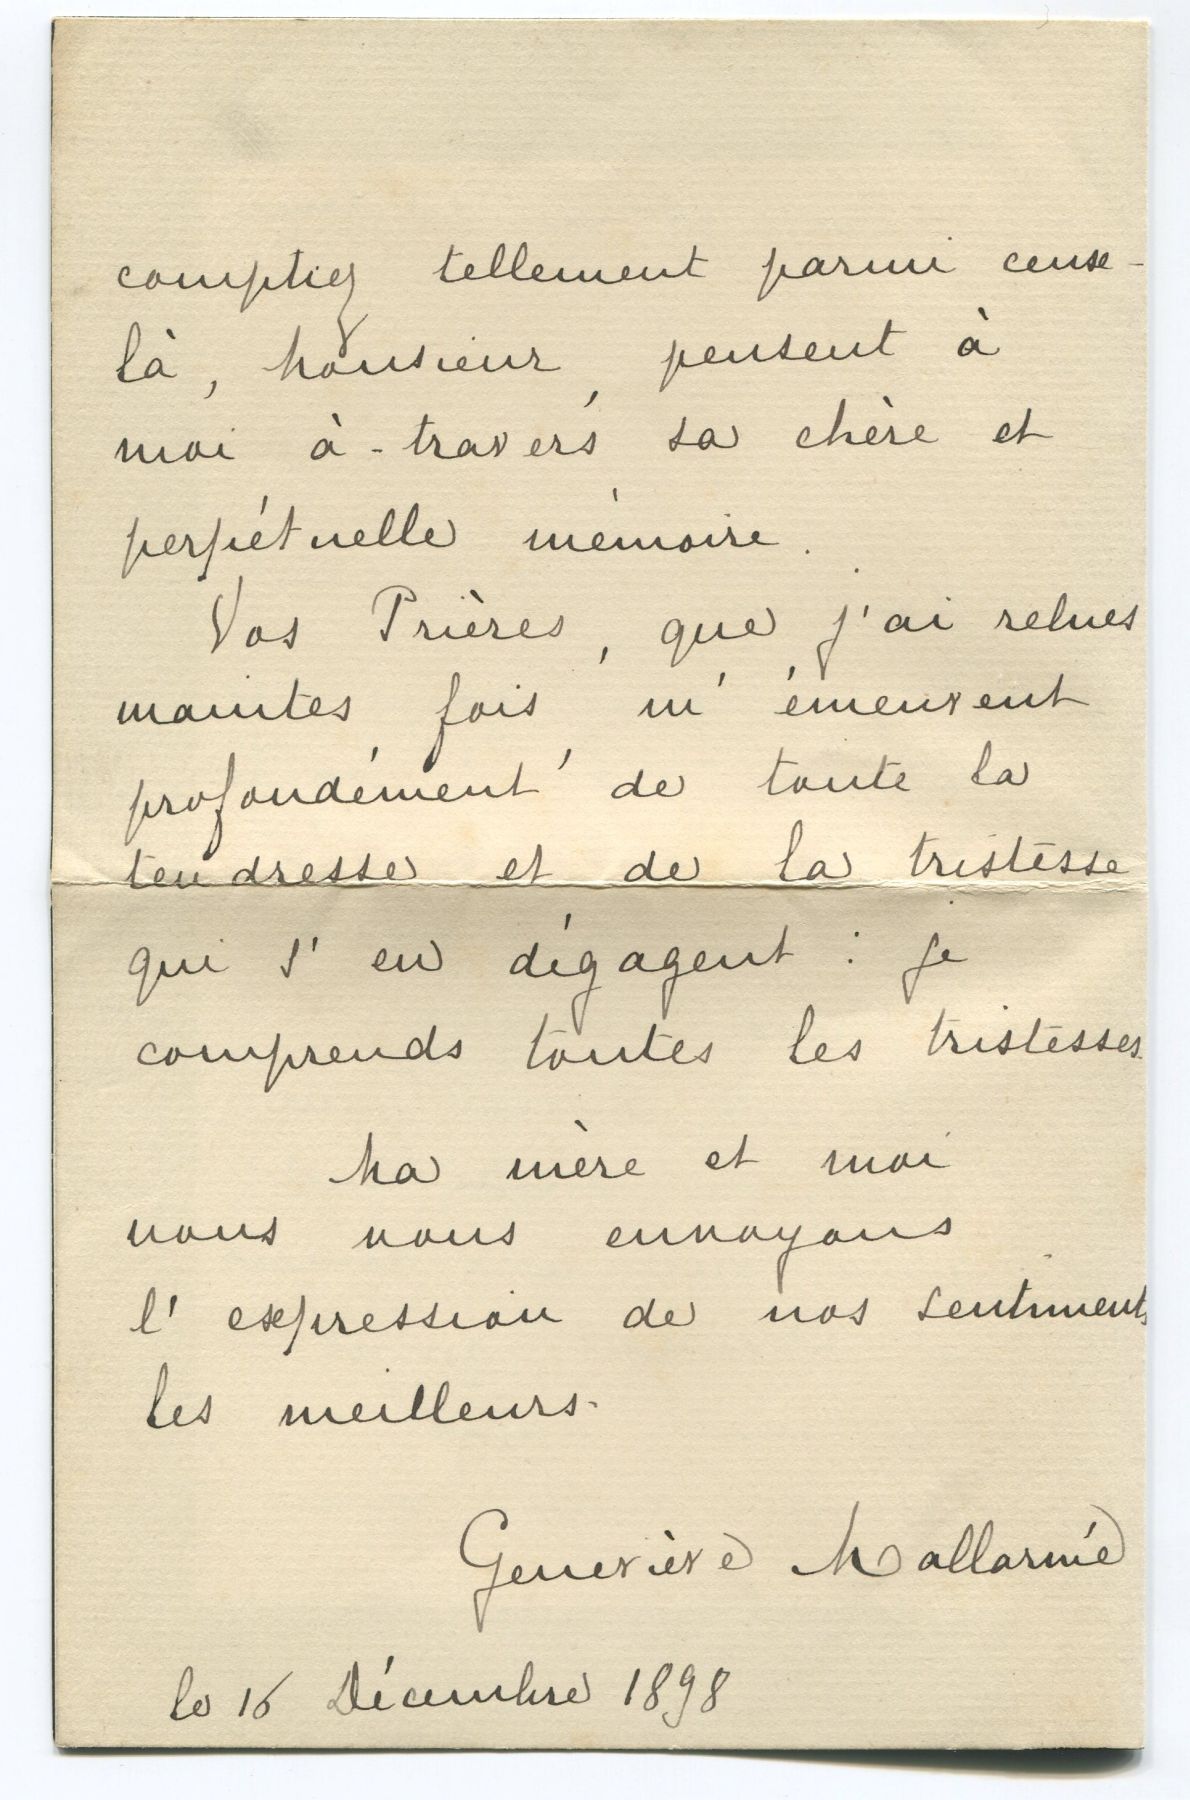 comptiez tellement parmi ceux-
là, Monsieur, pensent à
moi à-travers sa chère et
perpétuelle mémoire.
Vos Prières, que j'ai relues
maintes fois, m'émeuvent
profondément de toute la
tendresse et de la tristesse
qui s'en dégagent : je
comprends toutes les tristesses.
Ma mère et moi
nous vous envoyons
l'expression de nos sentiments
les meilleurs.
Geneviève Mallarmé
le 16 Décembre 1898